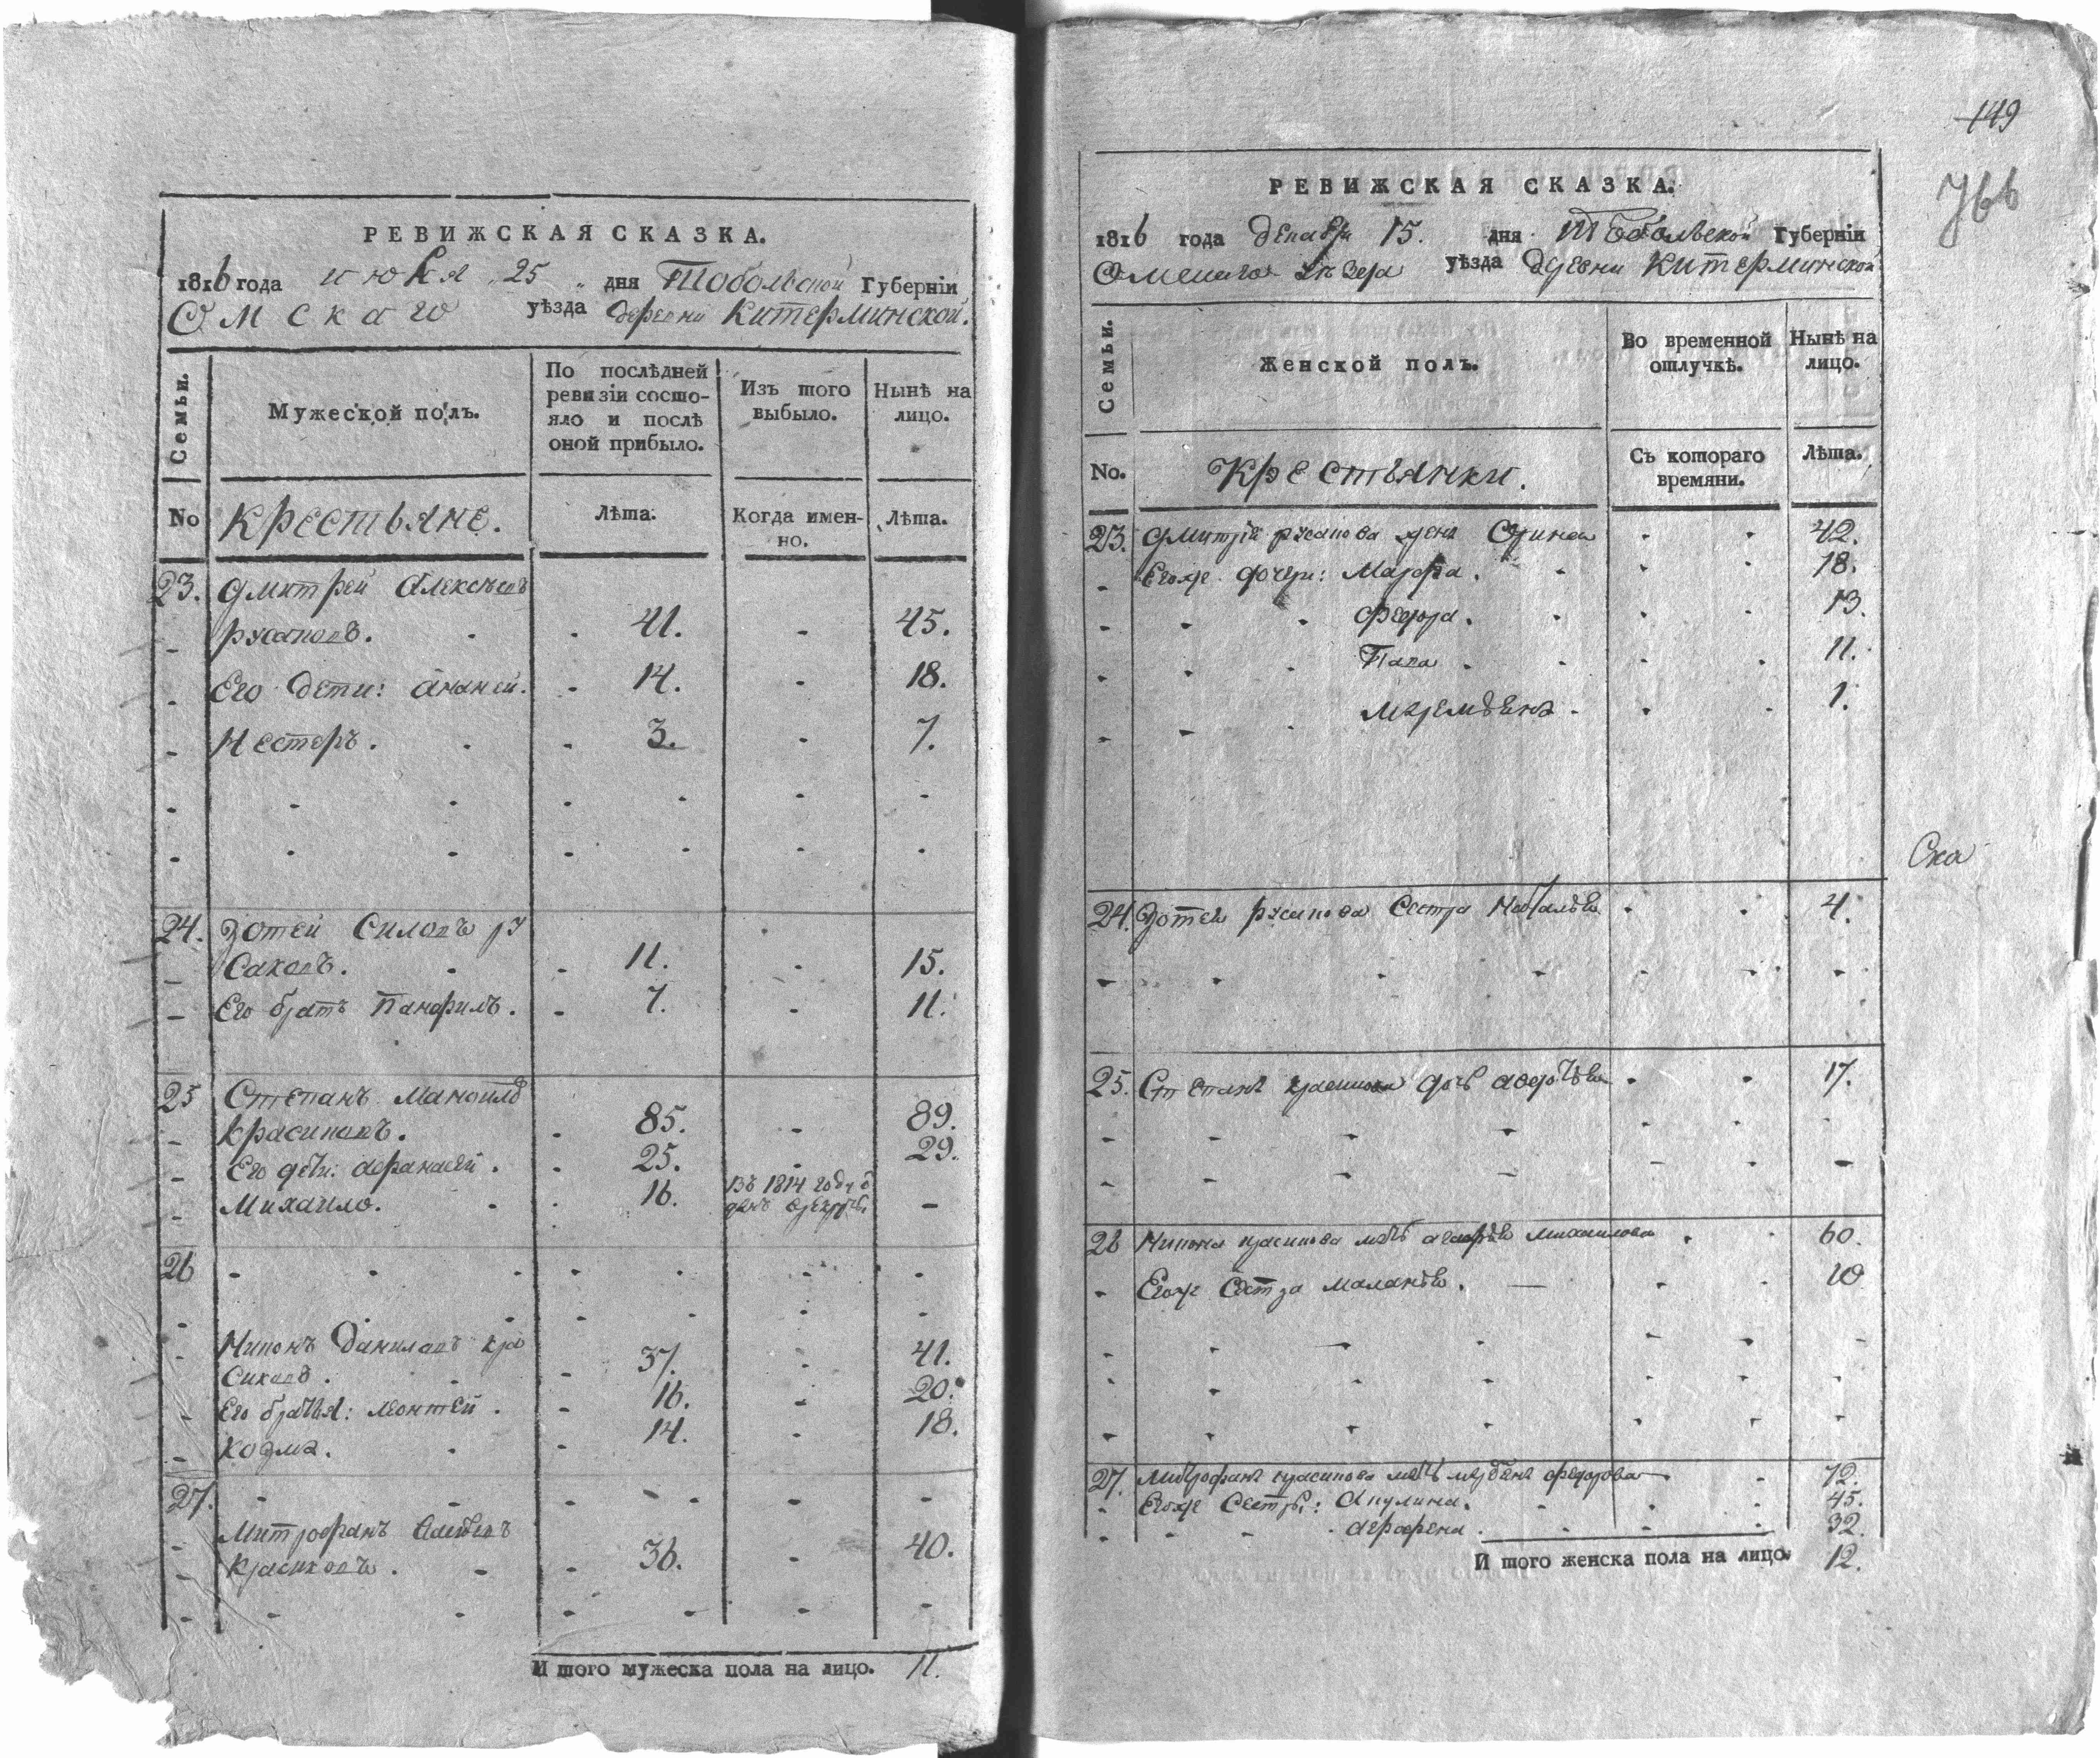 РЕВИЖСКАЯ СКАЗКА.
1816 года июля 25 дня Тобольской Губерніи
Омскаго уѣзда деревни Китерминской.
Семьи.
Мужеской полъ.
По послѣдней
ревизіи состо-
яло и послѣ
оной прибыло.
Изъ того
выбыло.
Нынѣ на
лицо.
No
Крестьяне.
Лѣта.
Когда имен-
но.
Лѣта.
23. Дмитрей Алексѣевъ
Русаковъ. 41. - 45.
Его дети: Ананей. 14. - 18.
Нестеръ. 3. - 7.
24. Зотей Силовъ Ру
саковъ. 11. - 15.
Его братъ Панфилъ. 7. - 11.
25 Степанъ Маноилв
Красиковъ. 85. - 89.
Его дѣти: Афанасей. 25. - 29.
Михаило. 16. въ 1814 году о
данъ врекруты -
26
Никонъ Даниловъ Кра
сиковъ. 37. - 41.
Его братья: Леонтей. 16. - 20.
Козма. 14. - 18.
27.
Митрофанъ
Красиковъ. 36. - 40.
И того мужеска пола на лицо. 11.
149
766
РЕВИЖСКАЯ СКАЗКА.
1816 года декабря 15. дня Тобольской Губерніи
Омскаго уѣзда деревни Китерминской
Семьи.
Женской полъ.
Во временной
отлучкѣ.
Нынѣ на
лицо.
No.
Крестьянки.
Съ котораго
времяни.
Лѣта.
23. Дмитрія Русакова жена Орина 42.
Егоже дочери: Марфа. 18.
Федора. 13.
11.
1.
Ска
24. Зотея Русакова сестра Наталья 4.
25. Степана Красикова дочь Авдотья 17.
26 Никона Красикова мать Агафья Михаилова 60.
Егоже сестра Маланья. 20
27. Митрофана Красикова мать Федорова 72.
Егоже сестры: Акулина. 45.
Аграфена. 32.
И того женска пола на лицо. 12.